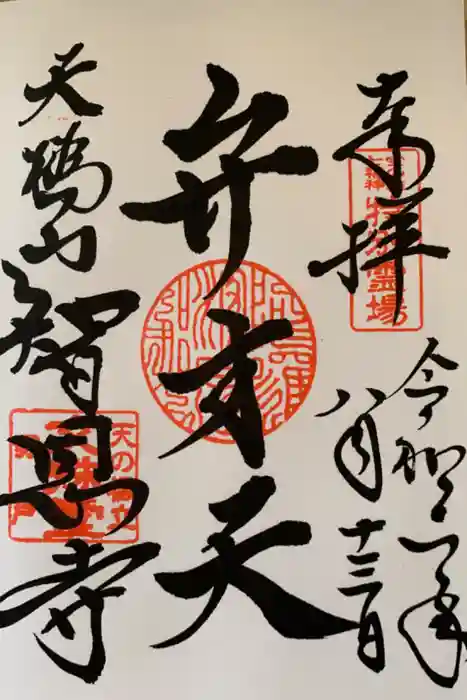 奉拝
令和二年
八月十三日
弁才天
天橋山
智恩寺
天の橋立
文殊堂